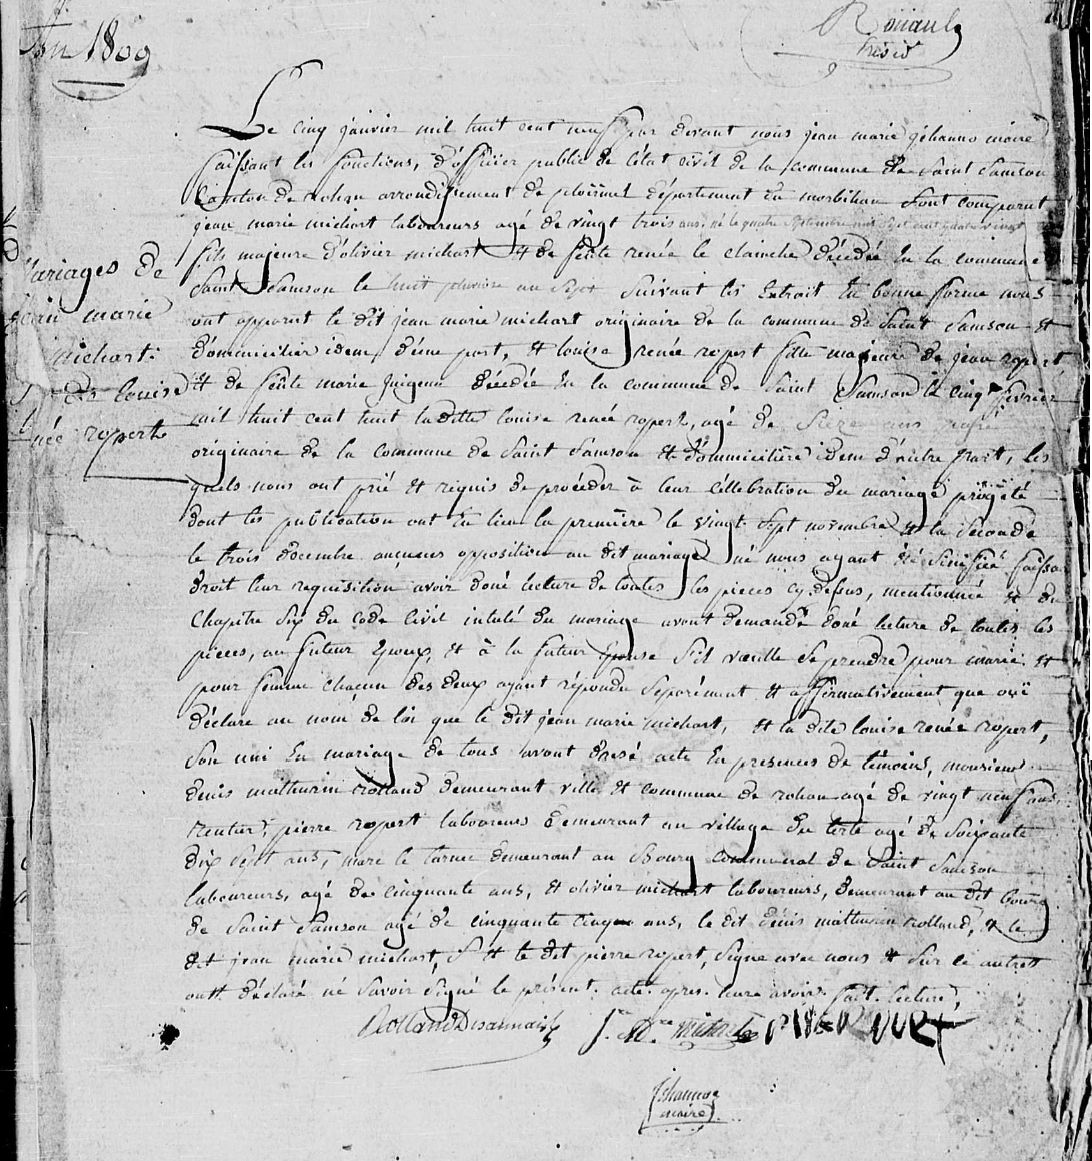 An 1809
Rouault
Présid
Le cinq janvier mil huit cent neuf par devant nous jean marie jéhanno maire
faissant les fonctions, d'officier public de l'état civil de la commune de Saint Samson
Canton de rohan arrondissement de ploërmel département du morbihan Sont comparut
jean marie michart laboureurs agé de vingt trois ans, né le quatre Septembre mil Sept cent quatre vingt
fils majeure d'olivier michart et de feüe renée le clainche décédée En la commune
Saint Samson le huit pluviose an Sept Suivant les Extrait En bonne forme nous
ont apparut le dit jean marie michart originaire de la commune de Saint Samson et
domicilier idem d'une part, et louise renée ropert fille majeure de jean ropert
et de feüe marie guigenn décédée En la commune de Saint Samson le cinq février
mil huit cent huit la ditte louise renée ropert, agé de ans
originaire de la commune de Saint Samson et dommicilière idem d'autre part, les
quels nous ont prié et réquis de procéder à leur célébration du mariage projété
dont les publication ont Eu lieu la première le vingt Sept novembre et la Seconde
le trois décembre aucunes opposition au dit mariage né nous ayant été Sinifiée faissa
droit leur requisition, avoir doné lecture de toutes les pieces cy dessus, mentionnée et du
Chapitre Six du Code Civil intulé du mariage avont demandé doné lecture de toutes les
pieces, au futeur Epoux, et à la futeur Epouse S'il vœille Se prendre pour marié et
pour femme chacun des deux ayant répondu Séparément et afformativement que oüi
déclare au nom de loi que le dit jean marie michart, et la dite louise renée ropert,
Son uni En mariage de tous avont dressé acte En presences de témoins, monsieur
denis mathurin rolland demeurant ville et commune de rohan agé de vingt neuf ans
rentier, pierre ropert laboureurs demeurant au village du tertre agé de Soixante
dix Sept ans, marc le tarnec demeurant au Bourg communal de Saint Samson
laboureurs, agé de cinquante ans, et olivier michart laboureurs, demeurant au dit bourg
de Saint Samson agé de cinquante cinq ans, le dit dénis mathurin rolland, et le
dit jean marie michart, et le dit pierre ropert, Signe avec nous et Sur ce autres
ont déclaré né Savoir Signé le présent acte apres leure avoir fait lecture,
Mariages de
jean marie
michart
Et de louise
née ropert
Rolland Desaunais J. M. michart PIERE ROPERT
Jéhanno
maire